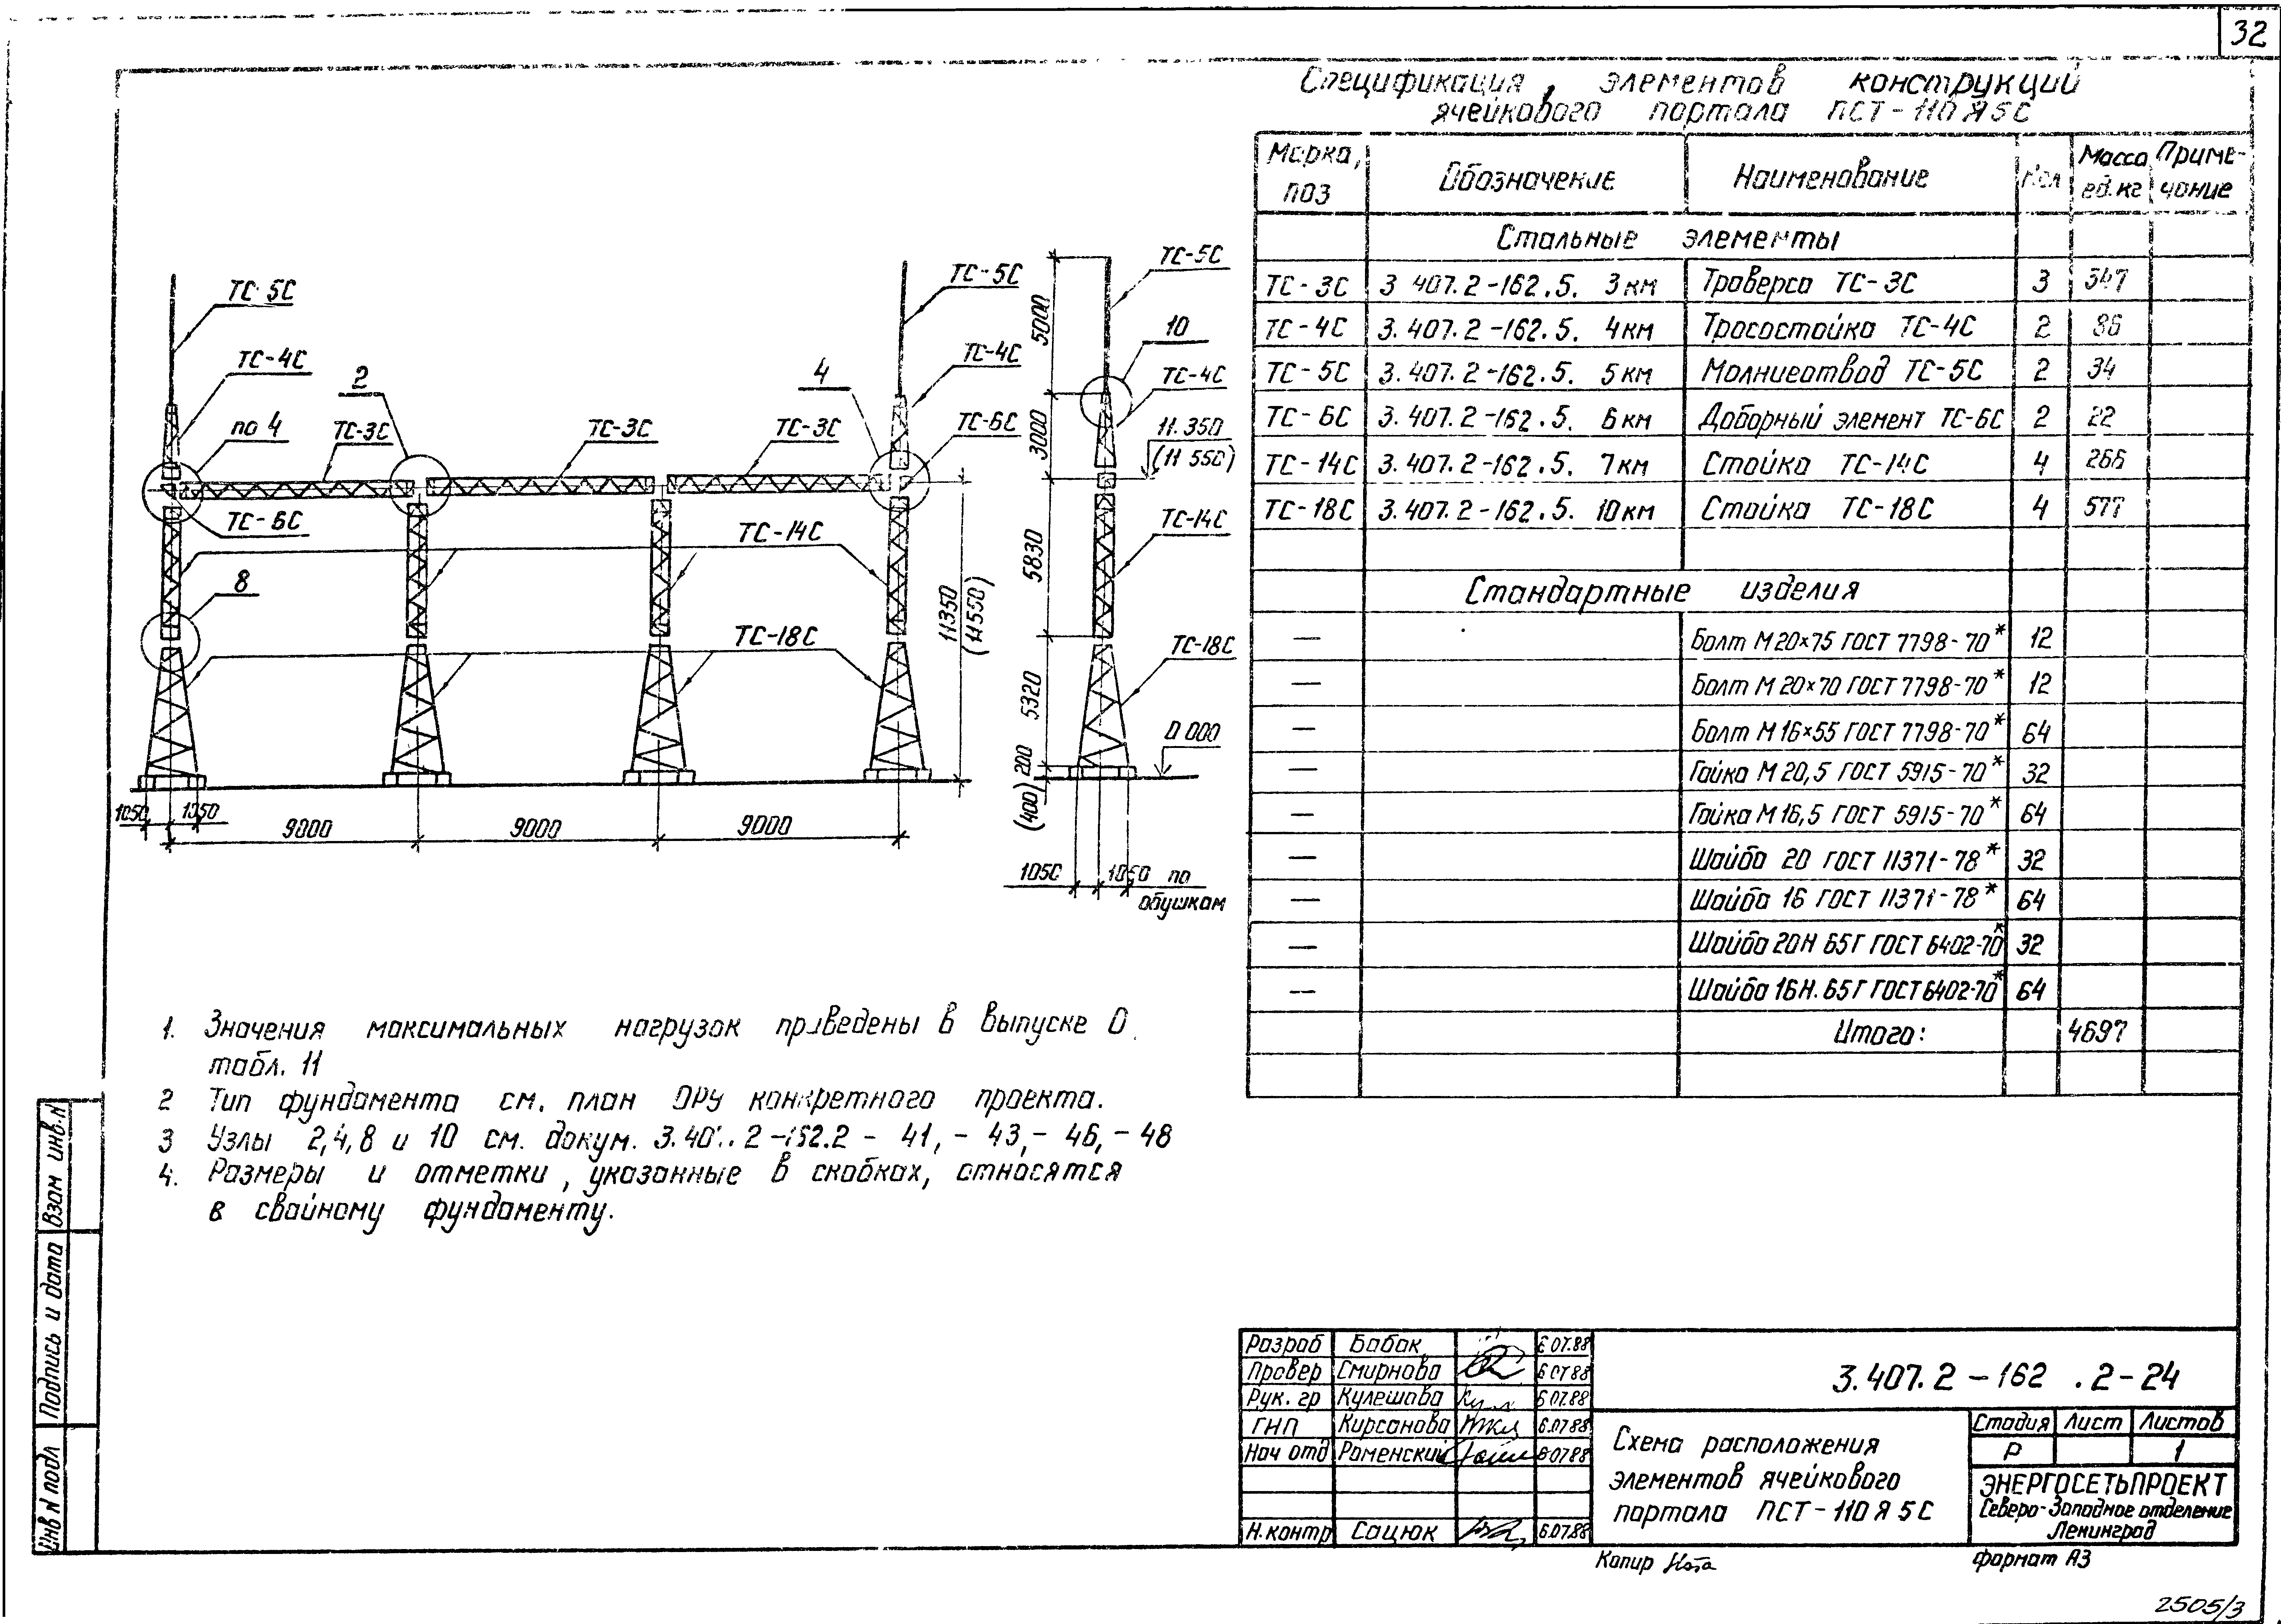 32
Спецификация элементов конструкций
ячейкового портала ПСТ-110Я5С
Марка, поз | Обозначение | Наименование | Кол | Масса ед.кг | Примечание
Стальные элементы
ТС-3С 3 407.2-162.5. 3км Траверса ТС-3С 3 347
ТС-4С 3.407.2-162.5. 4км Тросостойка ТС-4С 2 86
ТС-5С 3.407.2-162.5. 5км Молниеотвод ТС-5С 2 34
ТС-6С 3.407.2-162.5. 6км Доборный элемент ТС-6С 2 22
ТС-14С 3.407.2-162.5. 7км Стойка ТС-14С 4 266
ТС-18С 3.407.2-162.5. 10км Стойка ТС-18С 4 577
Стандартные изделия
— Болт М20×75 ГОСТ 7798-70* 12
— Болт М20×70 ГОСТ 7798-70* 12
— Болт М16×55 ГОСТ 7798-70* 64
— Гайка М20,5 ГОСТ 5915-70* 32
— Гайка М16,5 ГОСТ 5915-70* 64
— Шайба 20 ГОСТ 11371-78* 32
— Шайба 16 ГОСТ 11371-78* 64
— Шайба 20Н 65Г ГОСТ 6402-70* 32
— Шайба 16Н.65Г ГОСТ 6402-70* 64
Итого: 4697
ТС 5С
ТС-4С
по 4
ТС-3С
2
ТС-3С
ТС-3С
4
ТС-5С
ТС-4С
ТС-6С
ТС-6С
ТС-14С
8
ТС-18С
11350
(11550)
1050
1050
9000
9000
9000
ТС-5С
10
ТС-4С
11.350
(11 550)
ТС-14С
ТС-18С
0 000
5000
3000
5830
5320
200
(400)
1050
1050 по
обушкам
1. Значения максимальных нагрузок приведены в выпуске 0
табл. 11
2 Тип фундамента см. план ОРУ конкретного проекта.
3 Узлы 2,4,8 и 10 см. докум. 3.40 .2-162.2 - 41, - 43,- 46,- 48
4. Размеры и отметки, указанные в скобках, относятся
к свайному фундаменту.
Взам инв.N
Подпись и дата
Инв N подл
Разраб Бабак 6 07.88
Провер Смирнова 6 07 88
Рук. гр Кулешова 6 07.88
ГИП Кирсанова 6.07.88
Нач отд Раменский 6 07 88
Н.контр Сацюк 6.07.88
3.407.2-162 .2-24
Схема расположения
элементов ячейкового
портала ПСТ-110Я5С
Стадия Лист Листов
Р 1
ЭНЕРГОСЕТЬПРОЕКТ
Северо-Западное отделение
Ленинград
Копир
формат А3
2505/3